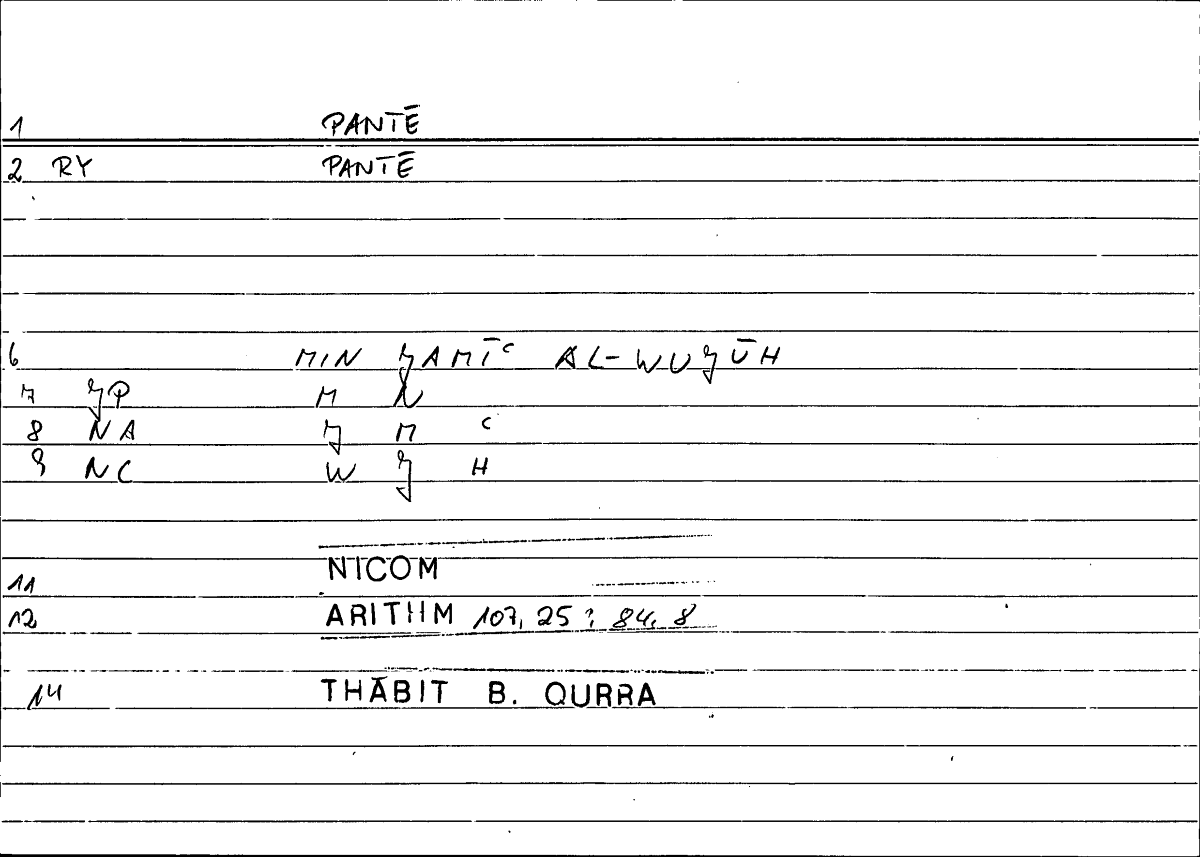 1 PANTĒ
2 RY PANTĒ
6 MIN ǦAMĪʿ AL-WUǦŪH
7 ǦP M N
8 NA Ǧ M ʿ
9 NC W Ǧ H
11 NICOM
12 ARITHM 107, 25 : 84, 8
14 THĀBIT B. QURRA